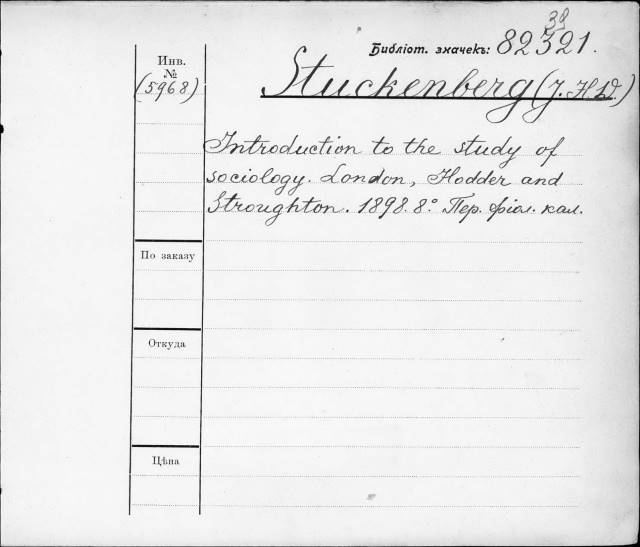 39
Библіот. значекъ: 82321.
Инв.
№
(5968)
Stuckenberg (J. H. W.)
Introduction to the study of
sociology. London, Hodder and
Stroughton. 1898. 8° Пер. фіол. кал.
По заказу
Откуда
Цѣна